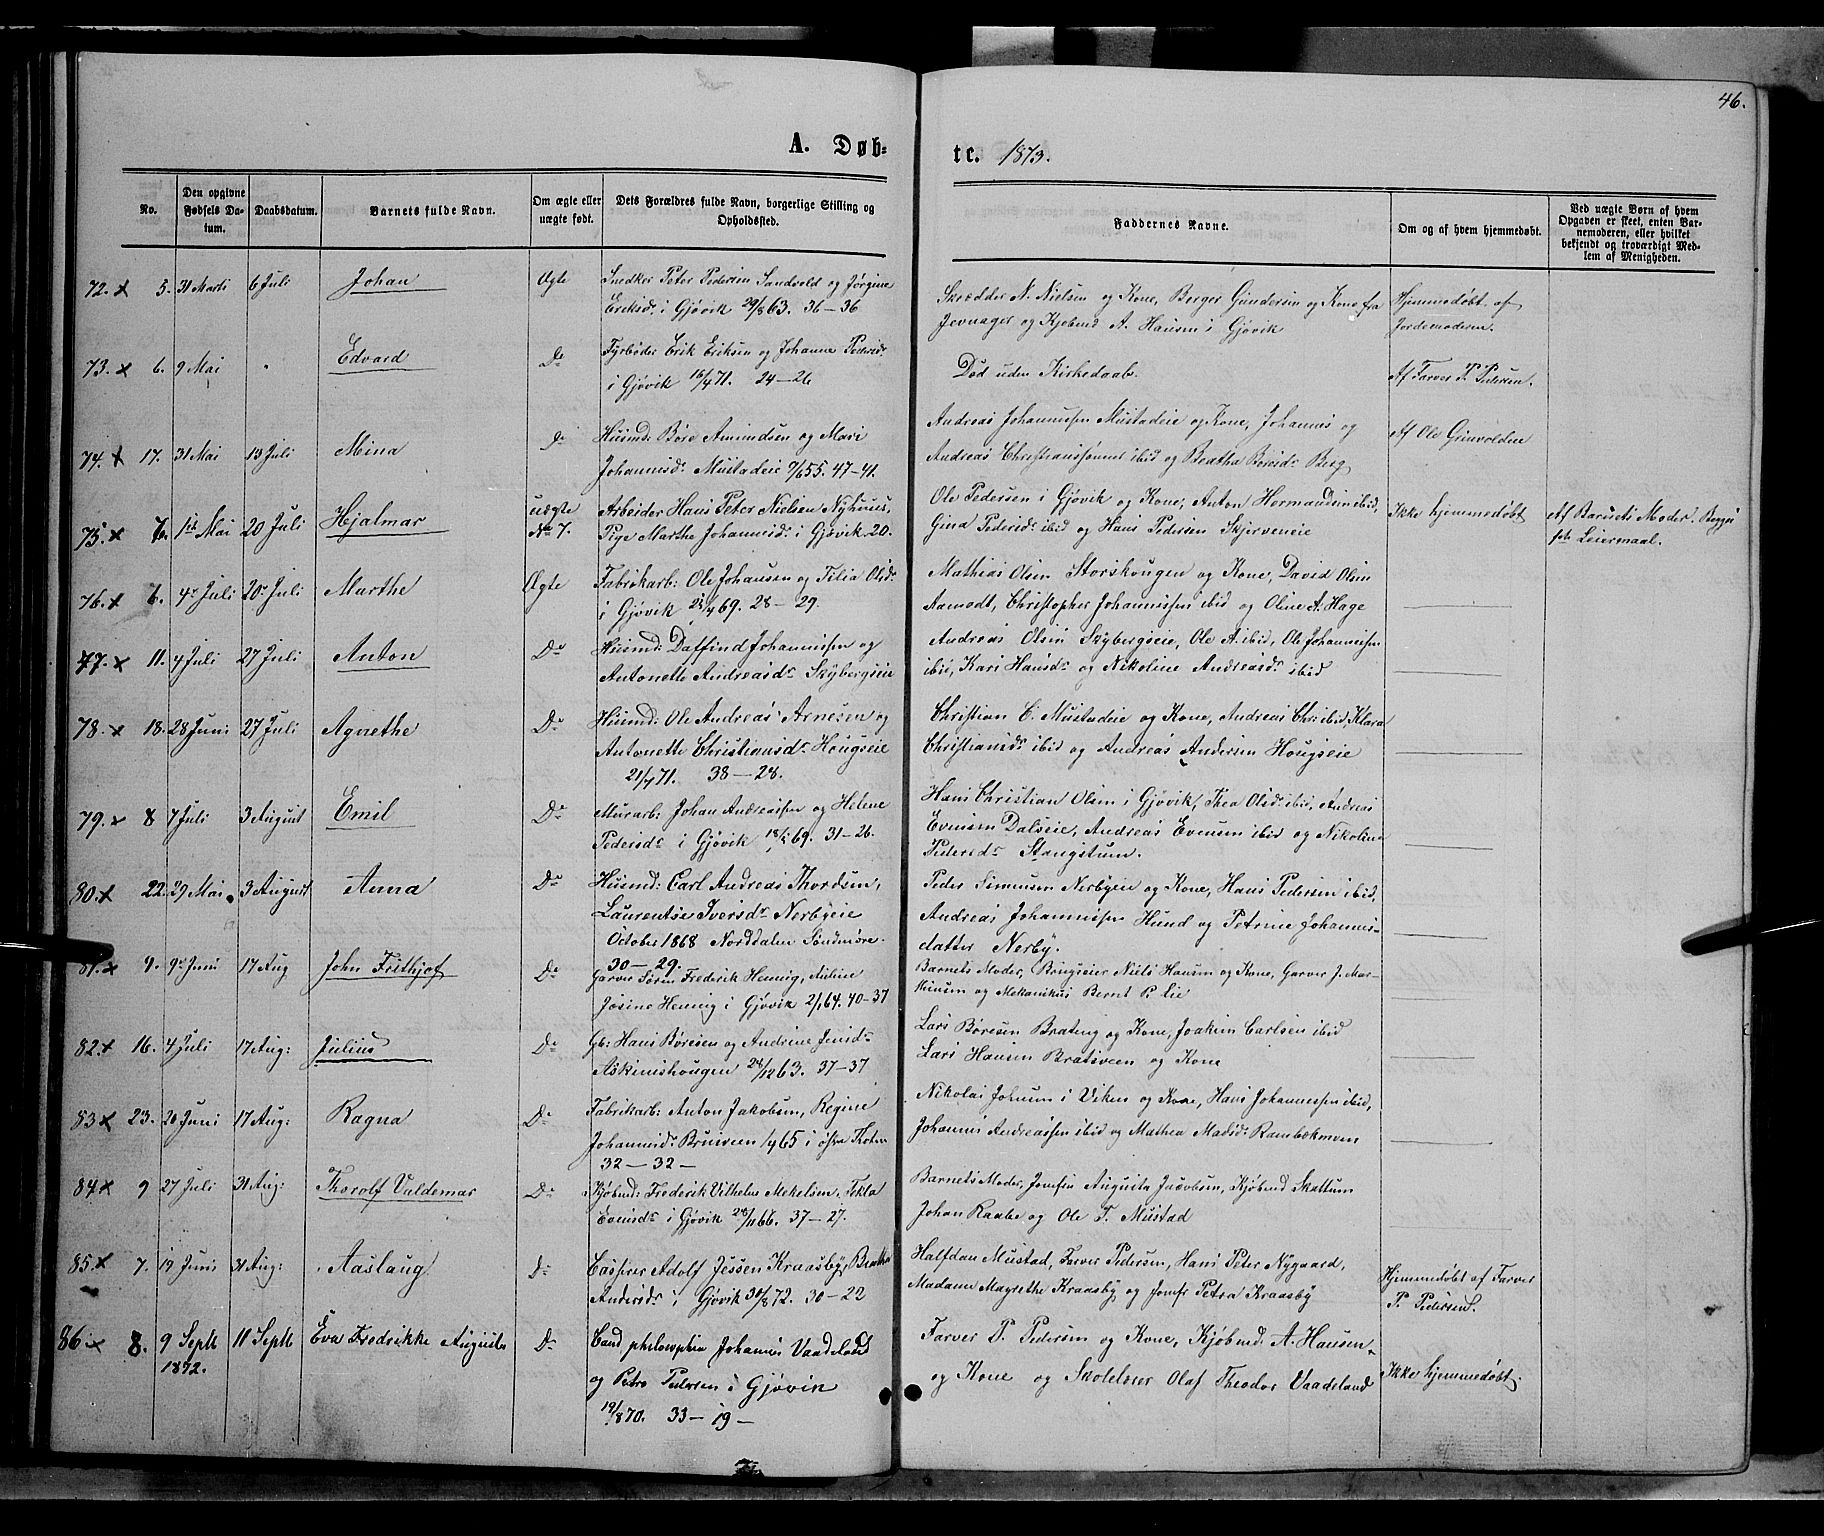 46.
A. Døb-
te. 1873.
No.
Den opgivne Fødsels Datum.
Daabsdatum.
Barnets fulde Navn.
Om ægte eller uægte født.
Dets Forældres fulde Navn, borgerlige Stilling og Opholdssted.
Faddernes Navne.
Om og af hvem hjemmedøbt.
Ved uægte Børn af hvem Opgaven er skeet, enten Barnemoderen, eller hvilket bekjendt og troværdigt Medlem af Menigheden.
72. x 5. 31 Marts 6 Juli Johan Ægte
Snedker Peter Pedersen Sandvold og Jørgine
Eriksd: i Gjøvik 29/8 63. 36-36
Skrædder N. Nielsen og Kone, Berger Gundersen og Kone fra
Jevnager og Kjøbmd A. Hansen i Gjøvik
Hjemmedøbt af
Jordemoderen.
73. x 6. 9 Mai " Edvard Do
Fyrbøder Erik Eriksen og Johanne Pedersdr
i Gjøvik 16/4 71. 24-26
Død uden Kirkedaab.
Af Farver P. Pedersen.
74. x 17. 31 Mai 13 Juli Mina Do
Husmd: Børe Amundsen og Mari
Johannisdr Mustadeie 55. 47-41.
Andreas Johannissen Mustadeie og Kone, Johannes og
Andreas Christianssønner ibid og Beatha Børesdr Berg
Af Ole Grinvolden
75. x 6. 1ste Mai 20 Juli Hjalmar uægte
No 7.
Arbeider Hans Peter Nielsen Nyhuus,
Pige Marthe Johannisdr i Gjøvik. 20.
Ole Pedersen i Gjøvik og Kone, Anton Hermandsen ibid,
Gina Pedersdr ibid og Hans Pedersen Skjerveneie
Ikke hjemmedøbt
Af Barnets Moder. Begges
Leiermaal.
76. x 6. 4de Juli 20de Juli Marthe Ægte
Fabrikarb: Ole Johansen og Tilia Olsdr
i Gjøvik 69. 28-29.
Mathias Olsen Storskougen og Kone, David Olsen
Aamodt, Christopher Johannissen ibid og Oline A. Hage
77. x 11. 4 Juli 27 Juli Anton Do
Husmd: Daffind Johannissen og
Antonette Andreasdr Skybergseie
Andreas Olsen Skybergseie, Ole A. ibid, Ole Johannissen
ibid, Kari Hansdr og Nikoline Andreasdr ibid
78. x 18. 28 Juni 27 Juli Agnethe Do
Husmd: Ole Andreas Arnesen og
Antonette Christiansdr Hougseie
21/4 71. 38-28.
Christian C. Mustadeie og Kone, Andreas Chr: ibid, Klara
Christiansdr ibid og Andreas Andersen Hougseie
79. x 8 7 Juli 3 August Emil Do
Murarb: Johan Andreassen og Helene
Pedersdr i Gjøvik 69. 31-26.
Hans Christian Olsen i Gjøvik, Thea Olsdr ibid, Andreas
Evensen Dalseie, Andreas Evensen ibid og Nikoline
Pedersdr Stangstuen.
80. x 22. 29 Mai 3 August Anna Do
Husmd: Carl Andreas Thordsen,
Laurentse Iversdr Nerbyeie
October 1868 Norddalen Søndmøre.
30-29.
Peder Simensen Nerbyeie og Kone, Hans Pedersen ibid,
Andreas Johannissen Hund og Petrine Johannis-
datter Nerby.
81. x 4. 9de Juni 17 Aug John Frithjof Do
Garver Søren Frederik Hennig,
Josine Hennig i Gjøvik 2/1 64. 40-37
Barnets Moder, Brugseier Niels Hansen og Kone, Garver J. Mar-
thinsen og Mekanikus Bernt P. Lie
82. x 16. 4 Juli 17 Aug: Julius Do
Gb: Hans Børesen og Andrine Jensdr
Askimshougen 28/12 63. 37-37
Lars Børesen Brateng og Kone, Joakim Carlsen ibid
Lars Hansen Bratsveen og Kone
83 x 23. 20 Juni 17 Aug: Ragna Do
Fabrikarb: Anton Jakobsen, Regine
Johannisdr Bruiveen 1/4 65 i østre Thoten
32-32-
Nikolai Johnsen i Viken og Kone, Hans Johannessen ibid,
Johannis Andreassen ibid og Mathea Madsdr Rambekmoen
84 x 9 27 Juli 31 Aug: Thorolf Valdemar Do
Kjøbmd: Frederik Vilhelm Mikelsen, Tekla
Evensdr i Gjøvik 28/11 66. 37-27.
Barnets Moder, Jomfru Augusta Jacobsen, Kjøbmd Skattum
Johan Raabe og Ole T. Mustad
85. x 7. 19 Juni 31 Aug: Aaslaug Do
Casper Adolf Jessen Kraasby, Beatha
Andersdr i Gjøvik 30/8 72. 30-22
Halfdan Mustad, Farver Pedersen, Hans Peter Nygaard,
Madame Magrethe Kraasby og Jomfr Petra Kraasby
Hjemmedøbt af Farver
P. Pedersen.
86 x 8. 9 Septb 11 Septb Eva Fredrikke Augusta Do
1872.
Cand philosophia Johannes Vaadeland
og Petra Pedersen i Gjøvik
19/8 70. 33-19-
Farver P. Pedersen og Kone, Kjøbmd. A. Hansen
og Kone og Skolelærer Olaf Theodor Vaadeland
Ikke hjemmedøbt.